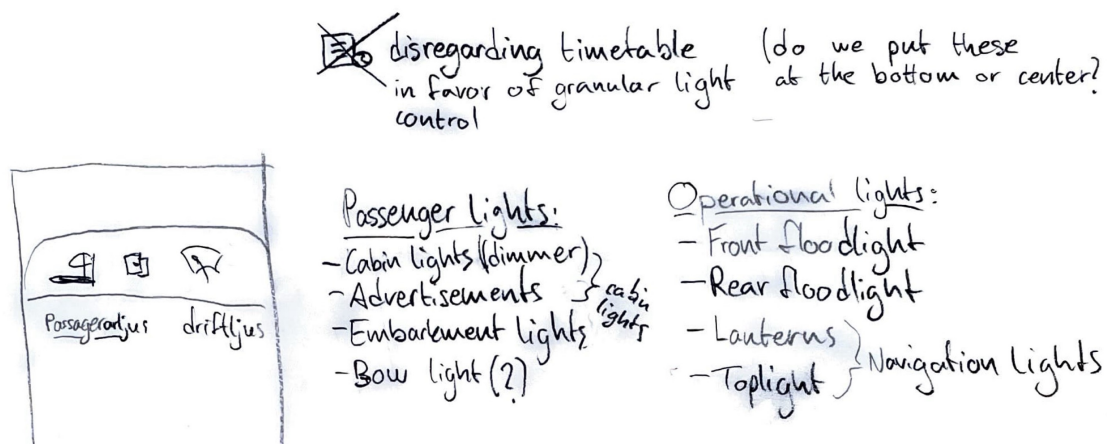 disregarding timetable
in favor of granular light
control
(do we put these
at the bottom or center?
Passenger lights:
- Cabin lights (dimmer)
- Advertisements
- Embarkment lights
- Bow light (?)
cabin
lights
Operational lights:
- Front floodlight
- Rear floodlight
- Lanterns
- Toplight
Navigation Lights
driftljus